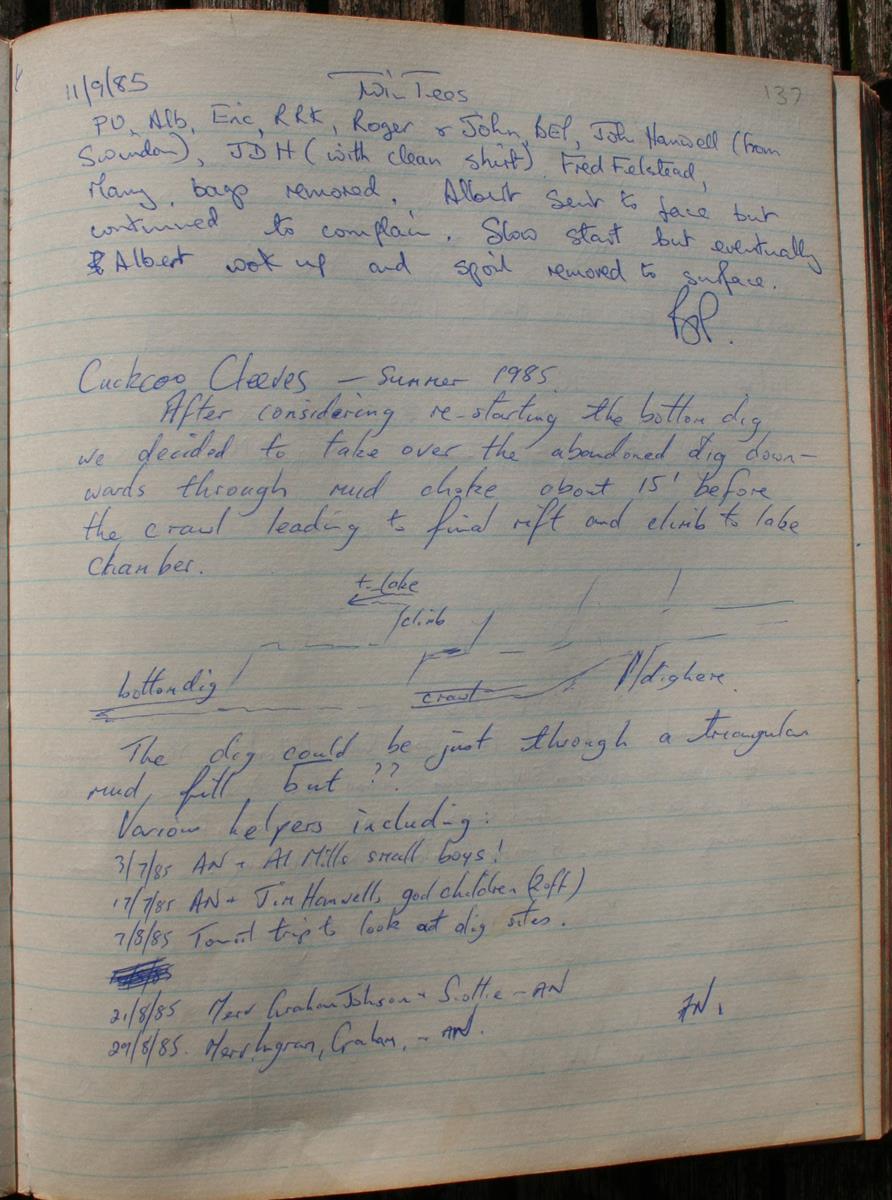 11/9/85 Twin Tees 137
PU, Alb, Eric, RRK, Roger & John, BEP, John Hanwell (from
Swindon), JDH (with clean shirt) Fred Felstead,
Many bags removed. Albert sent to face but
continued to complain. Slow start but eventually
Albert wok up and spoil removed to surface.
Cuckcoo Cleeves — Summer 1985.
After considering re-starting the bottom dig,
we decided to take over the abandoned dig down-
wards through mud choke about 15' before
the crawl leading to final rift and climb to lake
chamber.
to lake
climb
bottom dig
crawl
dig here.
The dig could be just through a triangular
mud fill but ??
Various helpers including:
3/7/85 AN + Al Mills small boys!
17/7/85 AN + Jim Hanwells god children (2 off)
7/8/85 Tourist trip to look at dig sites.
21/8/85 Merv Graham Johnson + Scottie - AN
29/8/85. Merv Ingram, Graham, - AN.
AN.